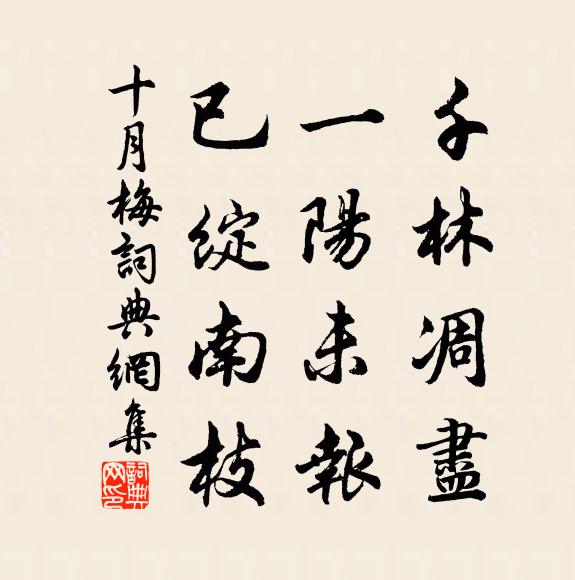 千林凋盡
一陽未報
已綻南枝
十月梅詞典網集
詞典网印